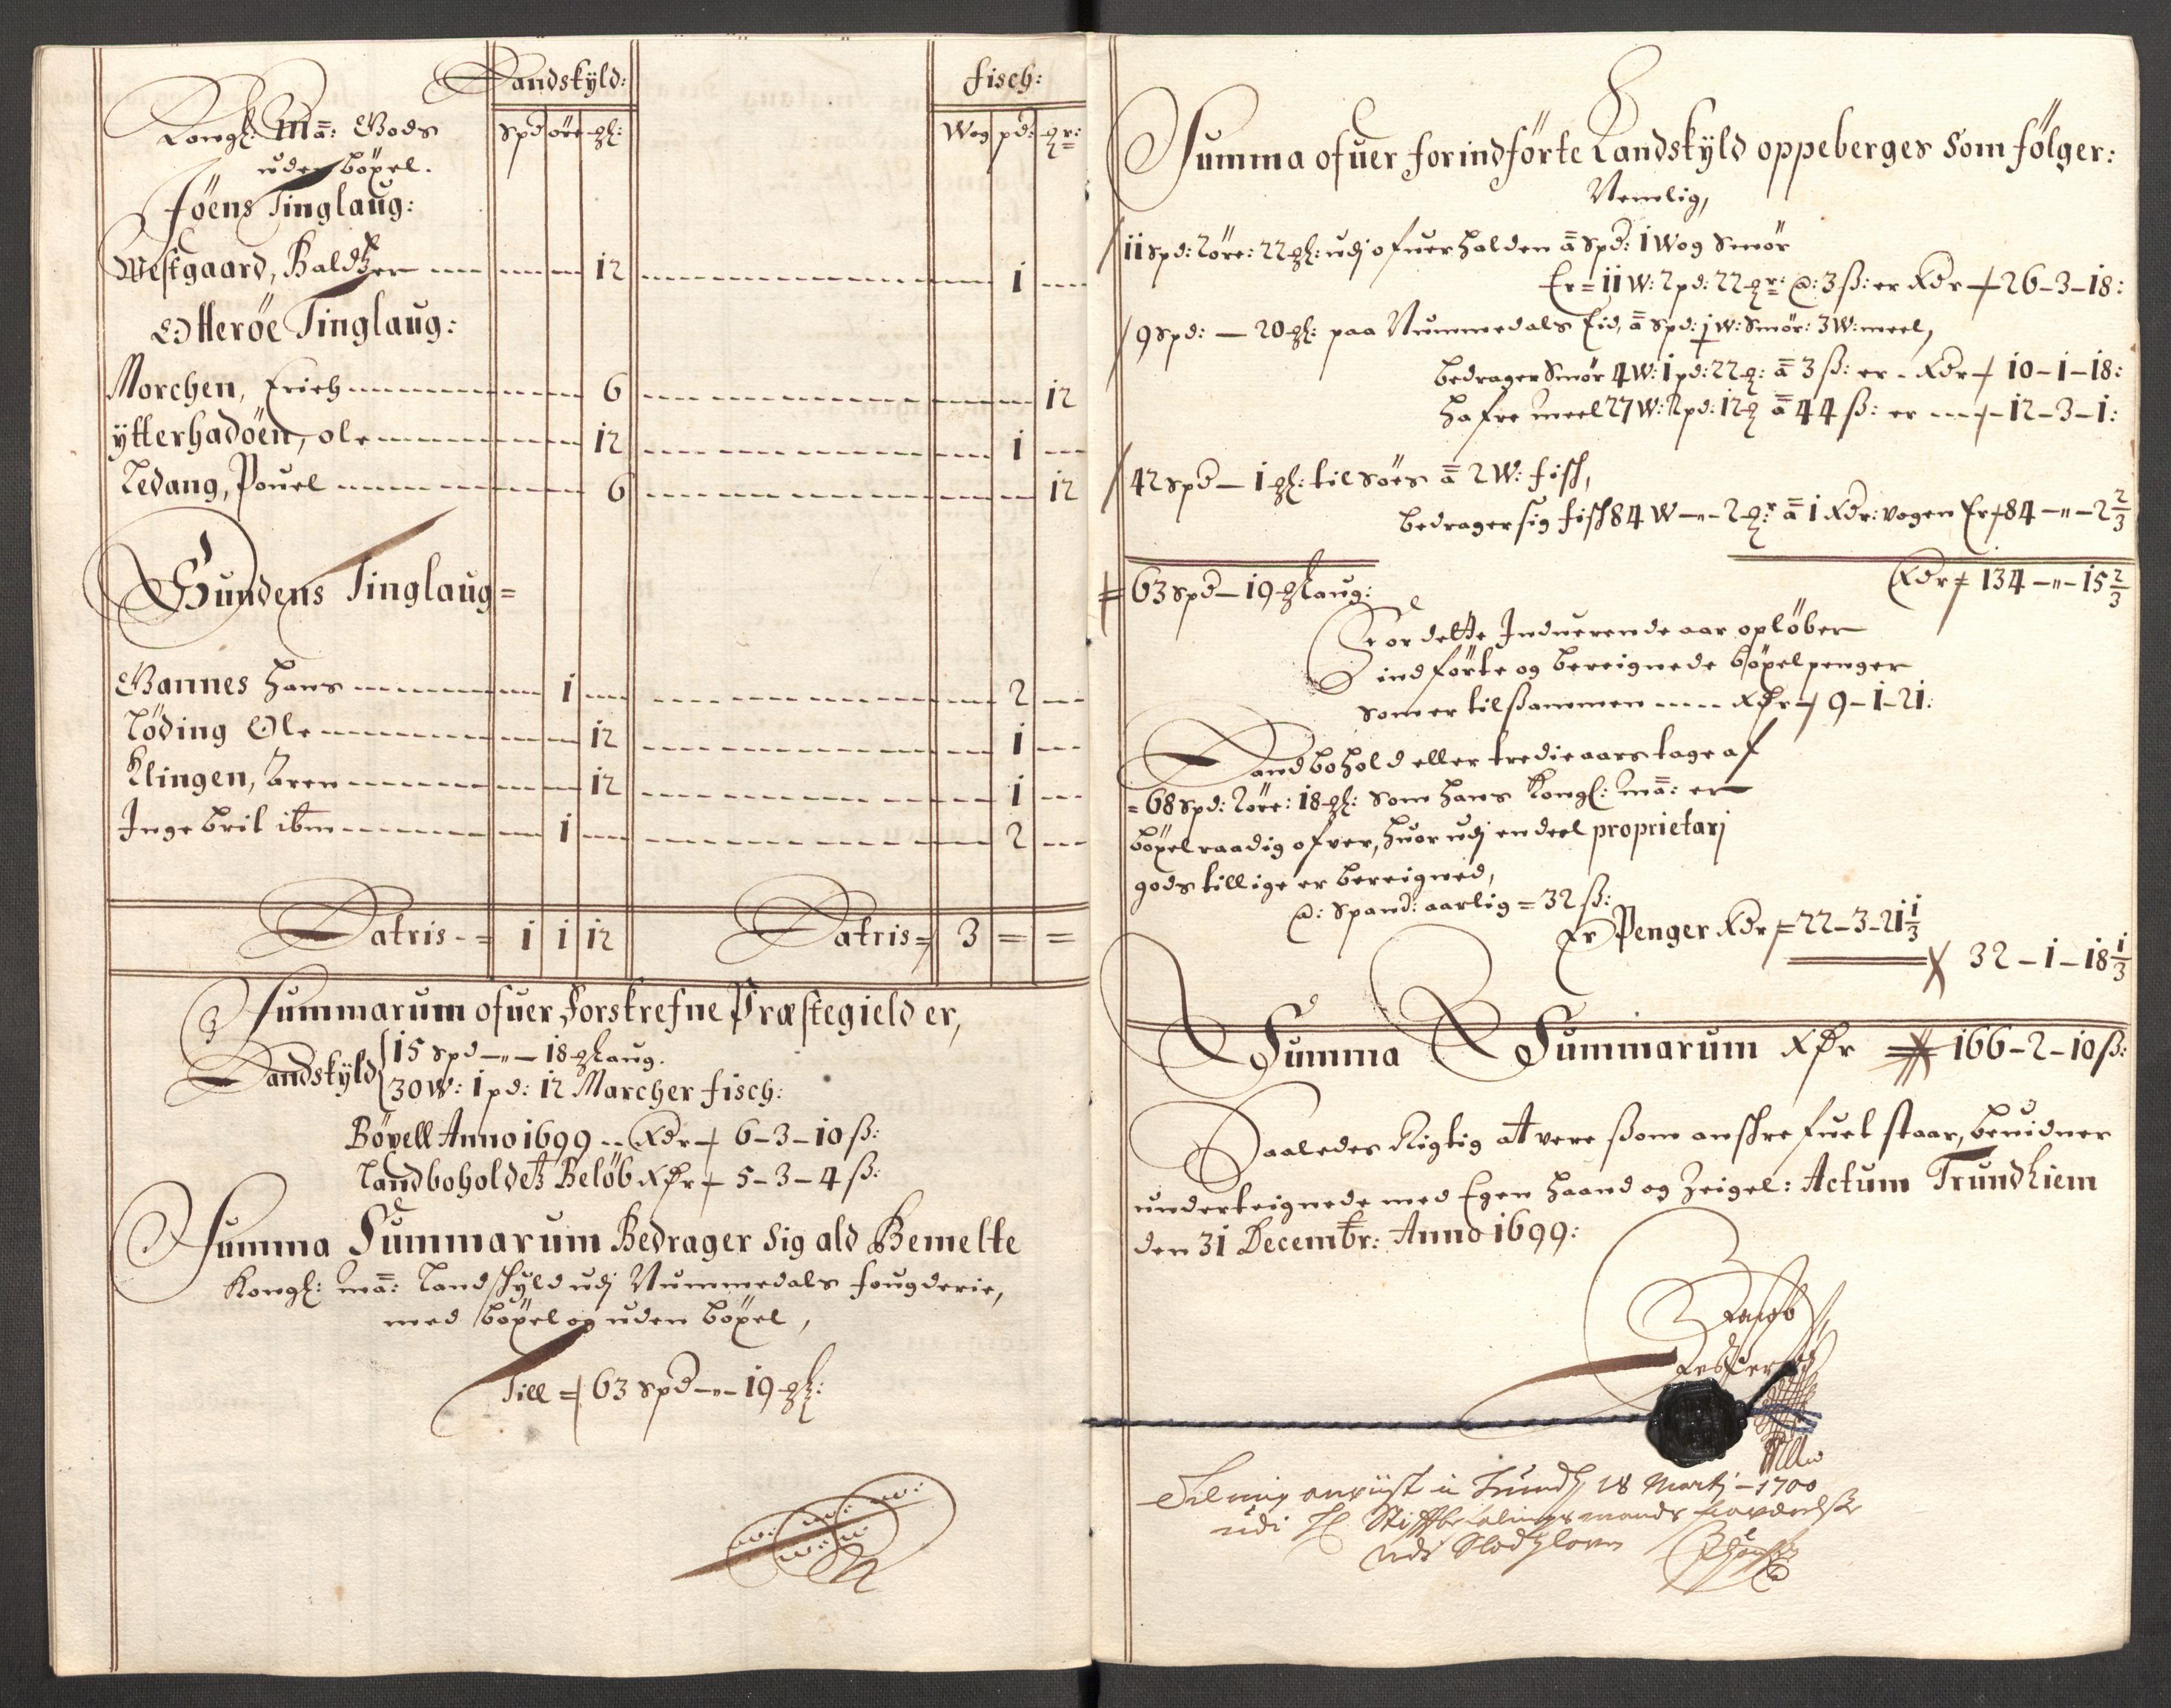 Landskÿld: fisch:
Kongl: Ma: Gods Spd öre ℔: Wog pd: ℔r:
uden böxel.
föens Tinglaug:
Westgaard, Baldtzer 12 1
Otterøe Tinglaug:
Morchen, Erich 6 12
ÿtterhadöen, ole 12 1
Ledang, Pouel 6 12
Sundens Tinglaug=
Bannes Hans 1 2
Löding Ole 12 1
Klingen, Sören 12 1
Ingebril ibm 1 2
Latris = 1 1 12 Latris = 3 = =
Summarum ofuer forskrefne Præstegield er,
Landskÿld 15 spd —„— 18 ℔ aug.
30 W: 1 pd: 12 Marcher fisch:
Böxell Anno 1699 .. Rdr 6-3-10 ß:
Landboholdetz Belöb Rdr 5-3-4 ß:
Summa Summarum Bedrager sig ald Bemelte
Kongl: Ma: Landskÿld udj Nummedals fougderie,
med böxel og uden böxel,
Till = 63 Spd —„— 19 ℔:
Summa ofuer forindförte Landskÿld oppeberges Som fölger:
Nemlig,
11 spd: 2 öre: 22 ℔: udj ofuerhalden a Spd: 1 Wog Smör
Er = 11 W: 2 pd: 22 ℔r: @: 3 ß: er Rdr 26-3-18:
9 Spd: — 20 ℔: paa Nummedals Eid, a Spd: ½ W: Smör: 3 W: meel,
bedrager Smör 4 W: 1 pd: 22 ℔: a 3 ß: er - Rdr 10-1-18:
hafre meel 27 W: 2 pd: 12 ℔ a 44 ß: er --- 12-3-1:
42 Spd — 1 ℔: til Söes a 2 W: fisch,
bedrager sig fisch 84 W —„— 2 ℔r a 1 Rdr: vogen Er 84 —„— 2 2/3
63 Spd — 19 ℔ aug: Rdr 134 —„— 15 2/3
For dette Induerende aar oplöber
indförte og bereignede böxelpenger
som er tilsammen ---- Rdr 9-1-21:
Landbohold eller tredieaarstage af
= 68 Spd: 2 öre: 18 ℔: som hans Kongl: Ma: er
böxelraadig ofver, huor udj en deel proprietarj
gods tillige er bereigned,
@: Spand: aarlig = 32 ß:
Er Penger Rdr = 22-3-21 1/3
32-1-18 1/3
Summa Summarum Rdr 166-2-10 ß:
Saaledes Rigtig at vere ßom anskrefuet staar, beuidner
underteignede med Egen haand og Zeigel: Actum Trundhiem
den 31 Decembr: Anno 1699:
udi Hr Stiftbefalingsmands
18 Martj – 1700